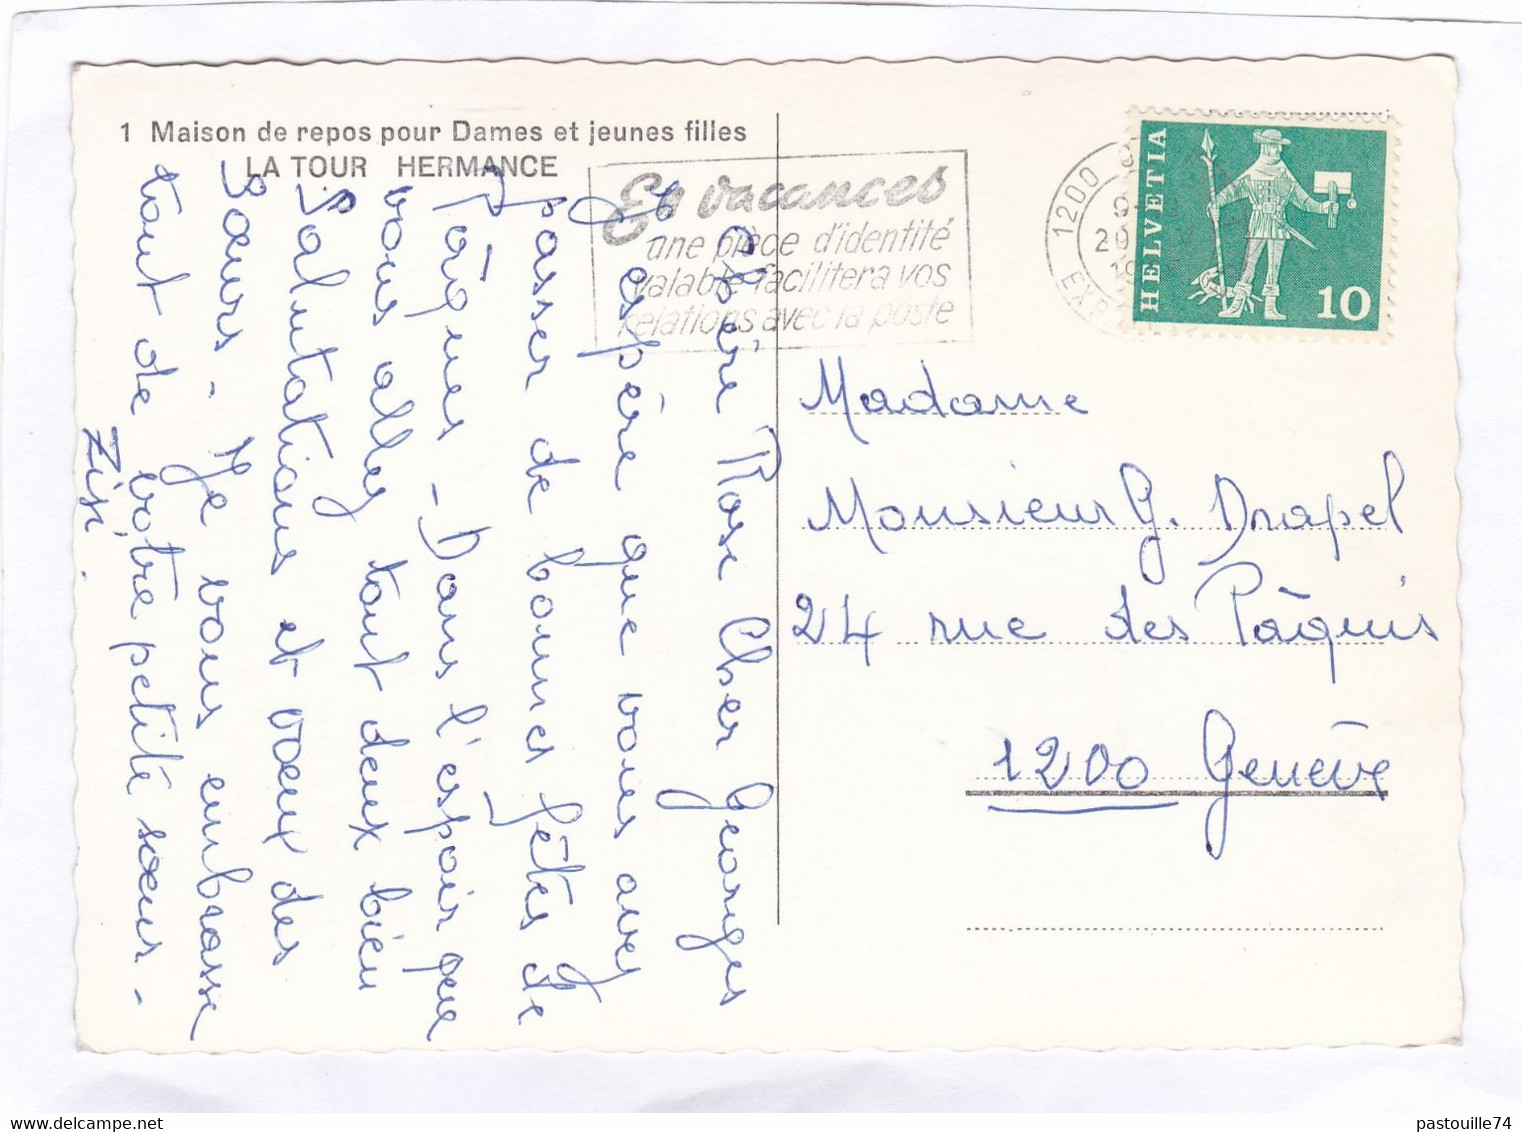 1 Maison de repos pour Dames et jeunes filles
LA TOUR HERMANCE
En vacances
une pièce d'identité
valable facilitera vos
relations avec la poste
1200
HELVETIA
10
Chère Rose Cher Georges
J'espère que vous avez
passer de bonnes fêtes de
Pâques - Dans l'espoir que
vous allez tout deux bien
Salutations et voeux des
Sœurs - Je vous embrasse
tout de votre petite sœur -
Zizi.
Madame
Monsieur G. Drapel
24 rue des Pâquis
1200 Genève
pastouille74